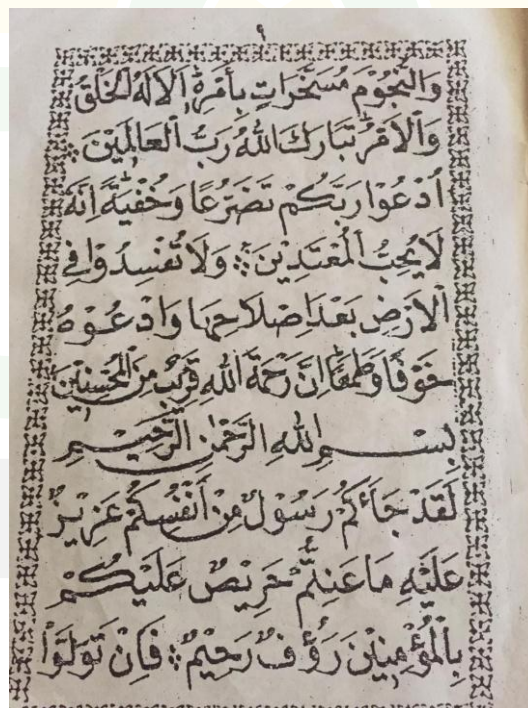 ٩
وَالنُّجُوْمَ مُسَخَّرَاتٍ بِاَمْرِهٖ اَلَا لَهُ الْخَلْقُ
وَالْاَمْرُ تَبَارَكَ اللّٰهُ رَبُّ الْعَالَمِيْنَ ؞
اُدْعُوْا رَبَّكُمْ تَضَرُّعًا وَخُفْيَةً اِنَّهُ
لَا يُحِبُّ الْمُعْتَدِيْنَ ؞ وَلَا تُفْسِدُوْا فِي
الْاَرْضِ بَعْدَ اِصْلَاحِهَا وَادْعُوْهُ
خَوْفًا وَطَمَعًا اِنَّ رَحْمَةَ اللّٰهِ قَرِيْبٌ مِنَ الْمُحْسِنِيْنَ
بِسْمِ اللّٰهِ الرَّحْمٰنِ الرَّحِيْمِ
لَقَدْ جَاۤءَكُمْ رَسُوْلٌ مِنْ اَنْفُسِكُمْ عَزِيْزٌ
عَلَيْهِ مَا عَنِتُّمْ حَرِيْصٌ عَلَيْكُمْ
بِالْمُؤْمِنِيْنَ رَؤُفٌ رَحِيْمٌ ؞ فَاِنْ تَوَلَّوْا